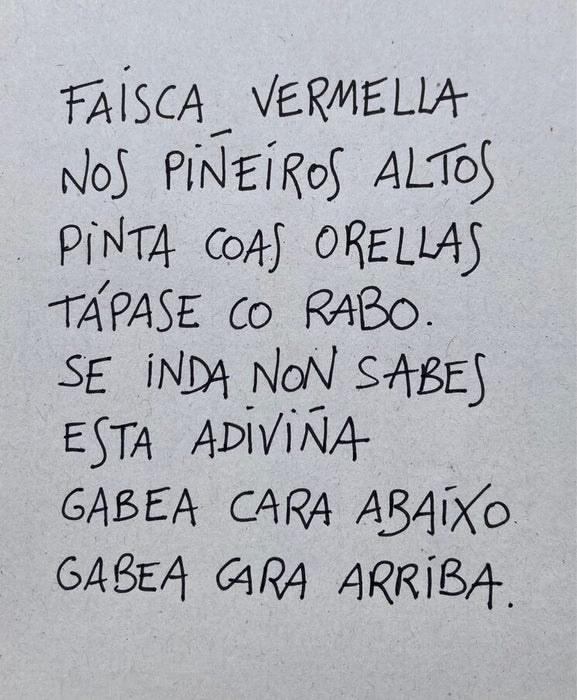 FAÍSCA VERMELLA
NOS PIÑEIROS ALTOS
PINTA COAS ORELLAS
TÁPASE CO RABO.
SE INDA NON SABES
ESTA ADIVIÑA
GABEA CARA ABAIXO.
GABEA CARA ARRIBA.